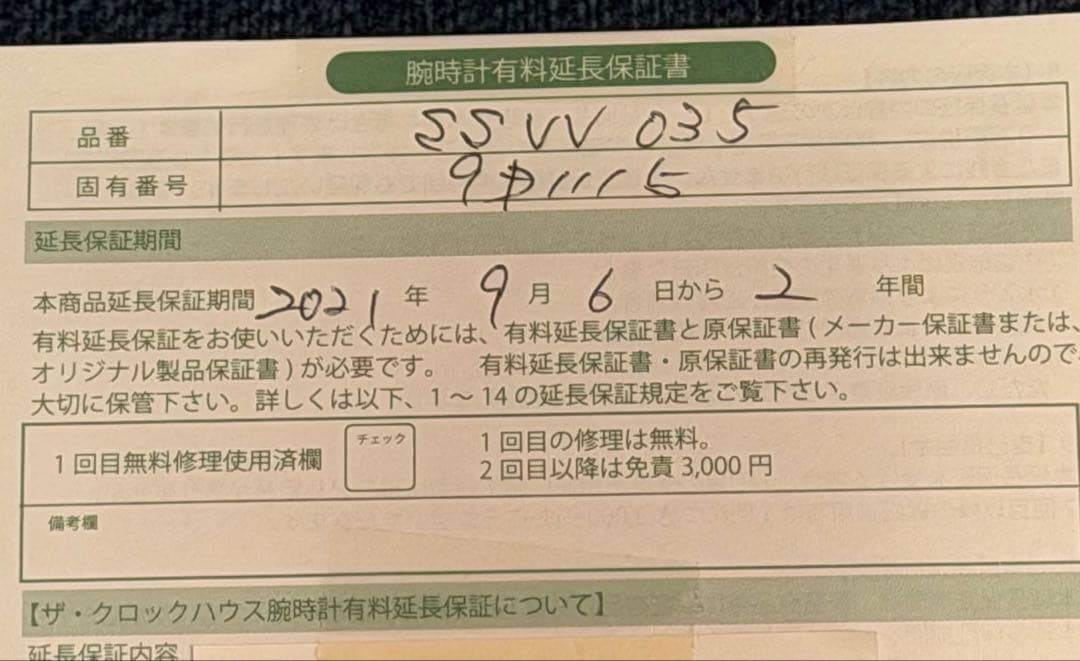 腕時計有料延長保証書
品番 SSVV035
固有番号
延長保証期間
本商品延長保証期間 2021 年 9 月 6 日から 2 年間
有料延長保証をお使いいただくためには、有料延長保証書と原保証書(メーカー保証書または、
オリジナル製品保証書)が必要です。 有料延長保証書・原保証書の再発行は出来ませんので
大切に保管下さい。詳しくは以下、1～14の延長保証規定をご覧下さい。
1回目無料修理使用済欄
チェック
1回目の修理は無料。
2回目以降は免責3,000円
備考欄
【ザ・クロックハウス腕時計有料延長保証について】
延長保証内容